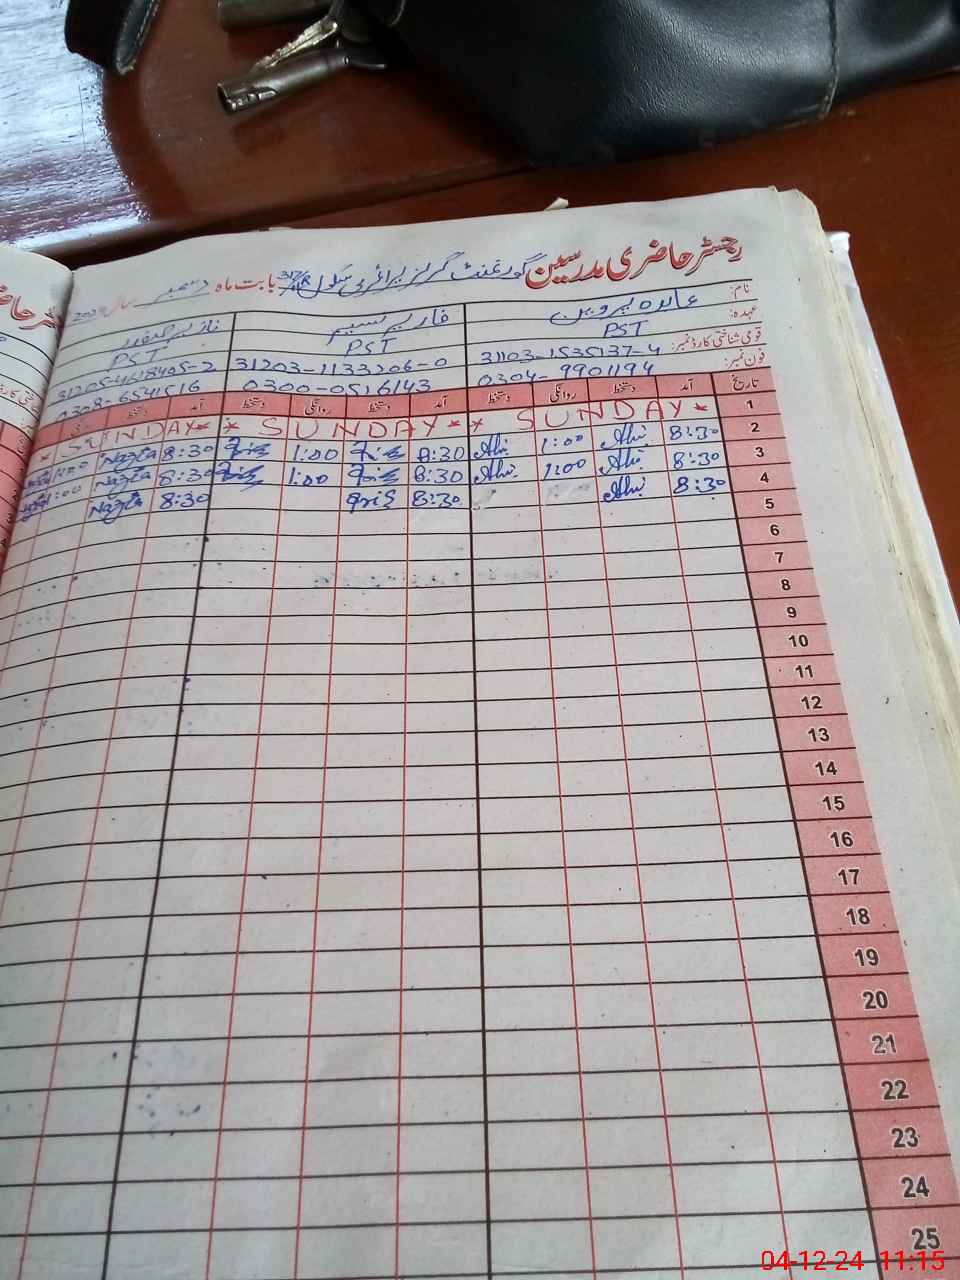 رجسٹر حاضری مدرسین گورنمنٹ گرلز پرائمری سکول بابت ماہ دسمبر سال 2024
نام: عابدہ پروین فاریہ نسیم
عہدہ: PST PST PST
قومی شناختی کارڈ نمبر: 31103-1535137-4 31203-1133206-0 31205-4618405-2
فون نمبر: 0304-9901194 0300-0516143 0308-6541516
تاریخ آمد دستخط روانگی دستخط آمد دستخط روانگی دستخط آمد دستخط
1 * SUNDAY * * SUNDAY * * SUNDAY *
2 8:30 1:00 8:30 1:00 8:30 Nazia 1:00
3 8:30 1:00 8:30 1:00 8:30 Nazia 1:00
4 8:30 8:30 8:30 Nazia
5
6
7
8
9
10
11
12
13
14
15
16
17
18
19
20
21
22
23
24
25
04-12-24 11:15